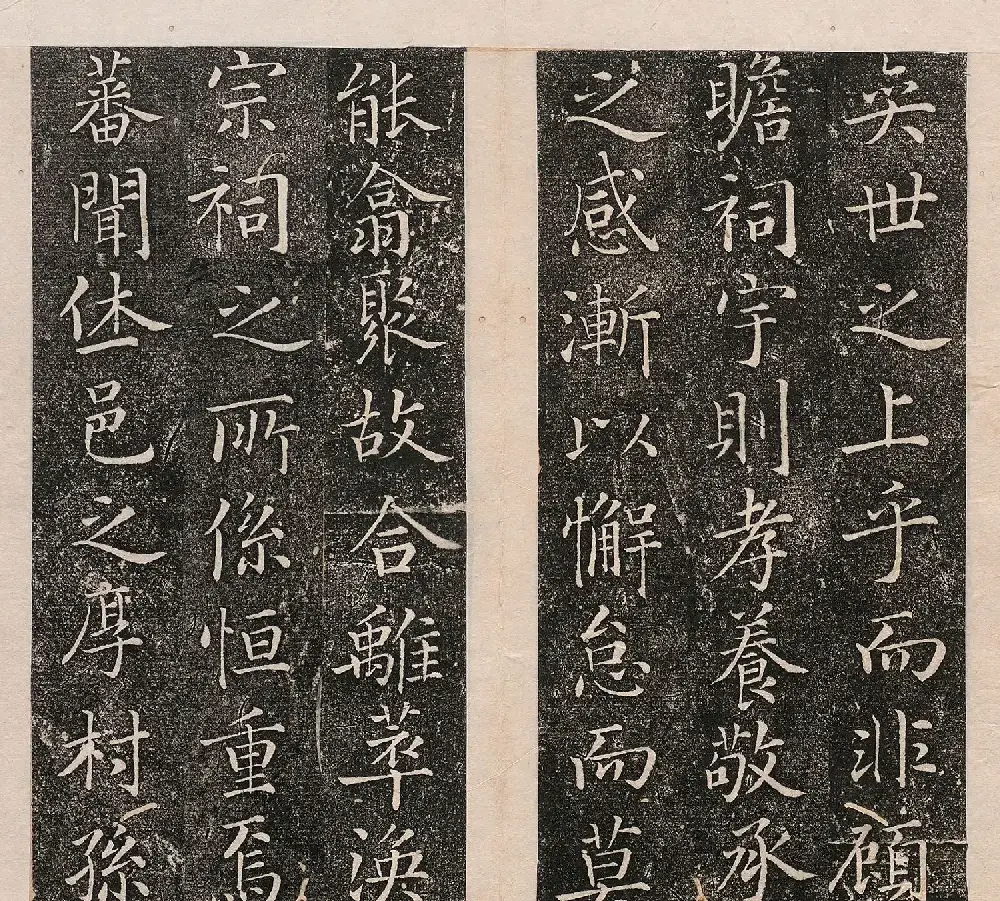 奕世之上乎而非顧
瞻祠宇則孝養敬承
之感漸以懈怠而莫
能翕聚故合離萃渙
宗祠之所係恒重焉
蕃聞休邑之厚村孫